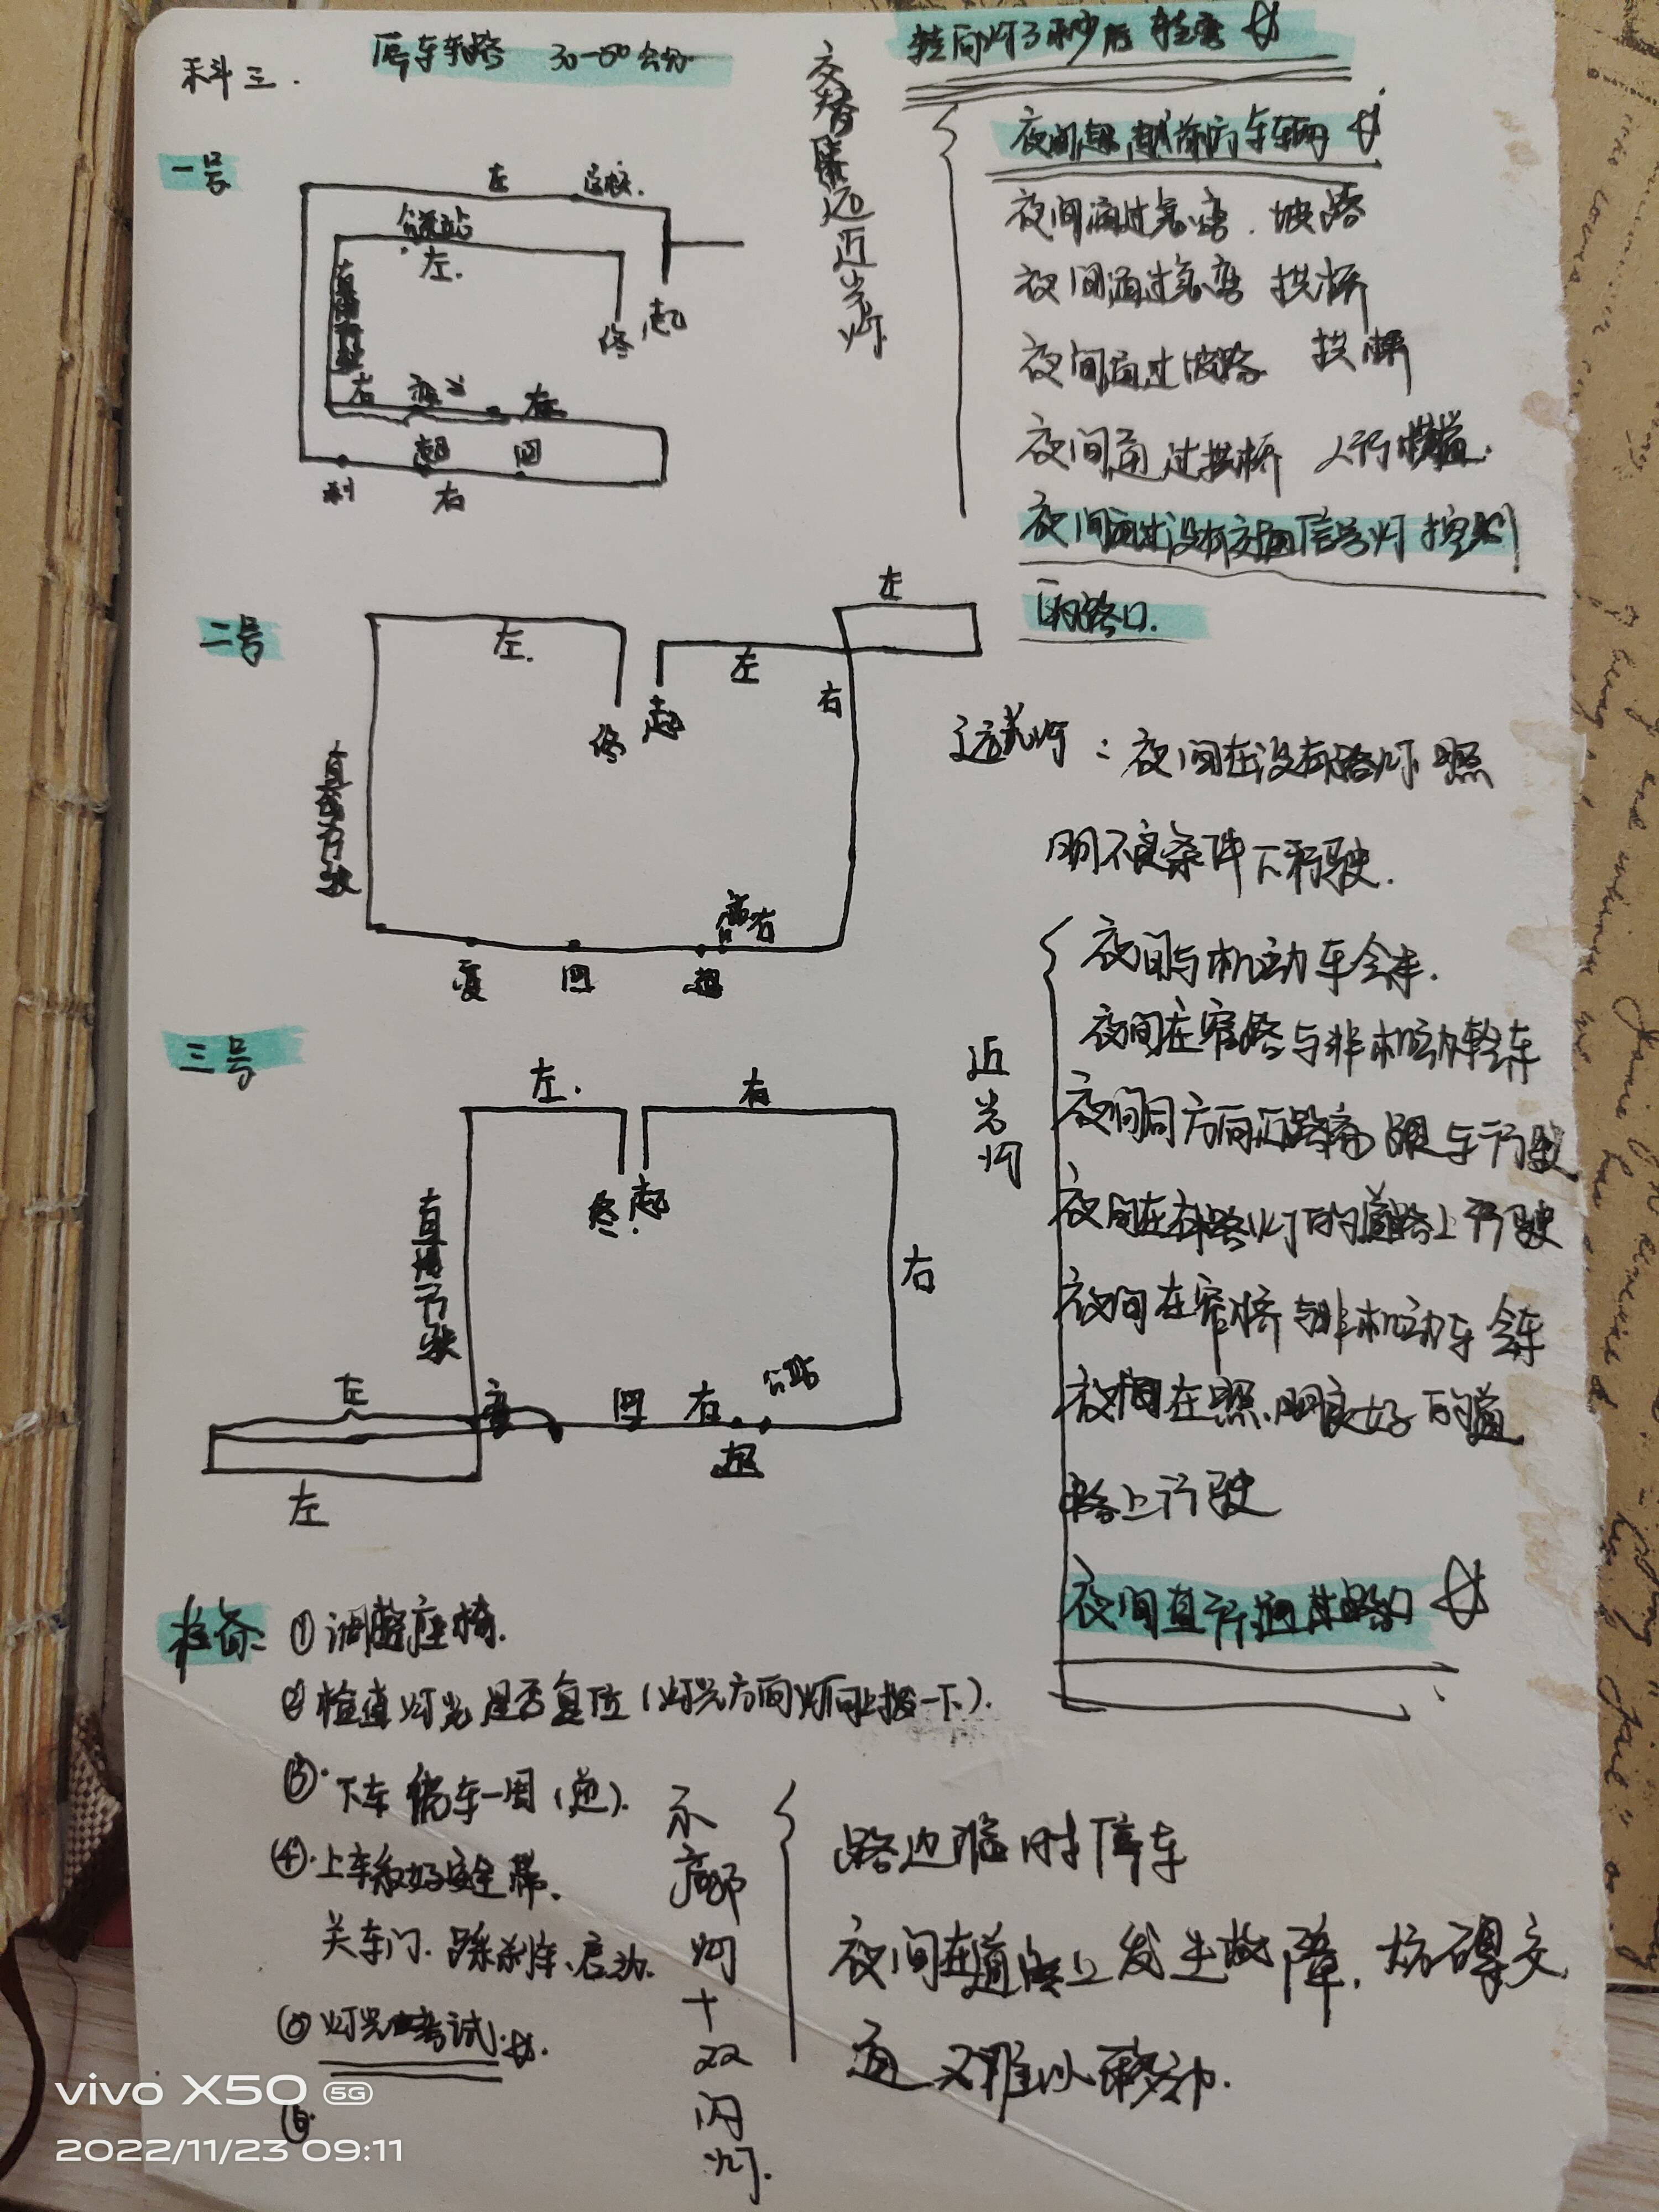 科三.
停车车路 30-50公分
转向灯3秒后转弯
一号
左
公交站
左.
直线行驶
终 起
右 变 右
超 回
右
交替远近光灯
夜间超越前方车辆
夜间通过急弯.坡路
夜间通过急弯 拱桥
夜间通过坡路 拱桥
夜间通过拱桥 人行横道.
夜间通过没有交通信号灯控制
的路口.
二号
左
左.
左
右
终 起
直线行驶
右
变 回 超
远光灯:夜间在没有路灯 照
明不良条件下行驶.
三号
左. 右
终. 起
直线行驶
右
左 变 回 右 公站
超
左
近光灯
夜间与机动车会车.
夜间在窄路与非机动车会车
夜间同方向近距离跟车行驶
夜间在有路灯的道路上行驶
夜间在窄桥与非机动车会车
夜间在照明良好的道
路上行驶
夜间直行通过路口
准备 ①调整座椅.
②检查灯光是否复位(灯光方向灯向上拨一下).
③.下车绕车一周(逆).
④.上车系好安全带.
关车门.踩刹车、启动.
⑤灯光考试.
⑥.
示廓灯十双闪灯.
路边临时停车
夜间在道路上发生故障,妨碍交
通又难以移动.
vivo X50 5G
2022/11/23 09:11